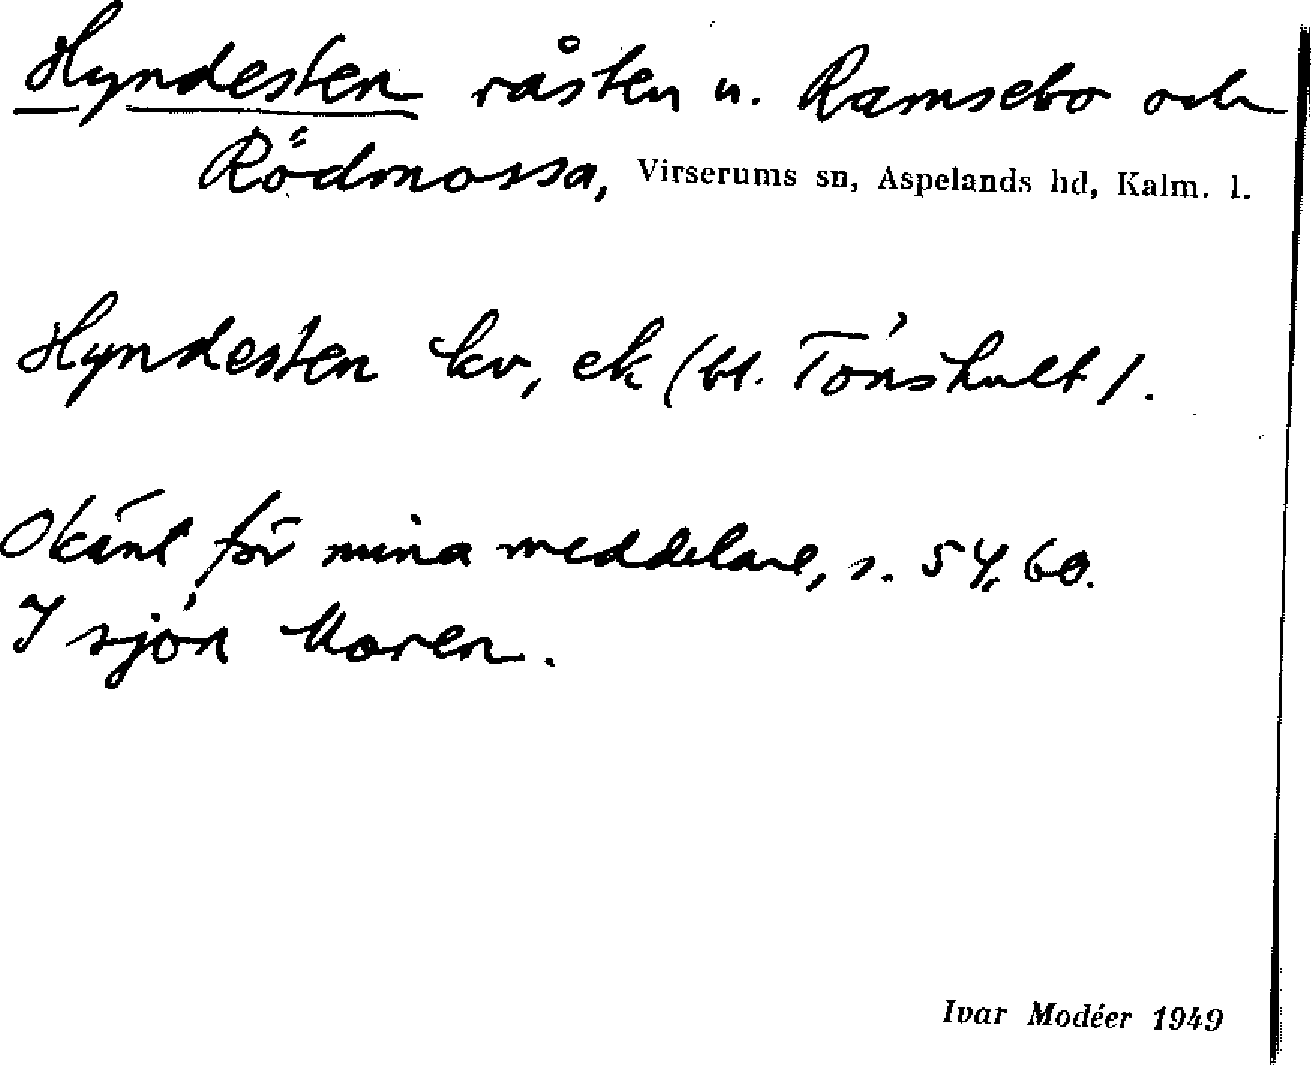 Hyndesten råsten u. Ramsebo och
Rödmossa, Virserums sn, Aspelands hd, Kalm. l.
Hyndesten kv, ek (bl. Tönshult).
Okänt för mina meddelare, s. 54, 60.
I sjön Moren.
Ivar Modéer 1949